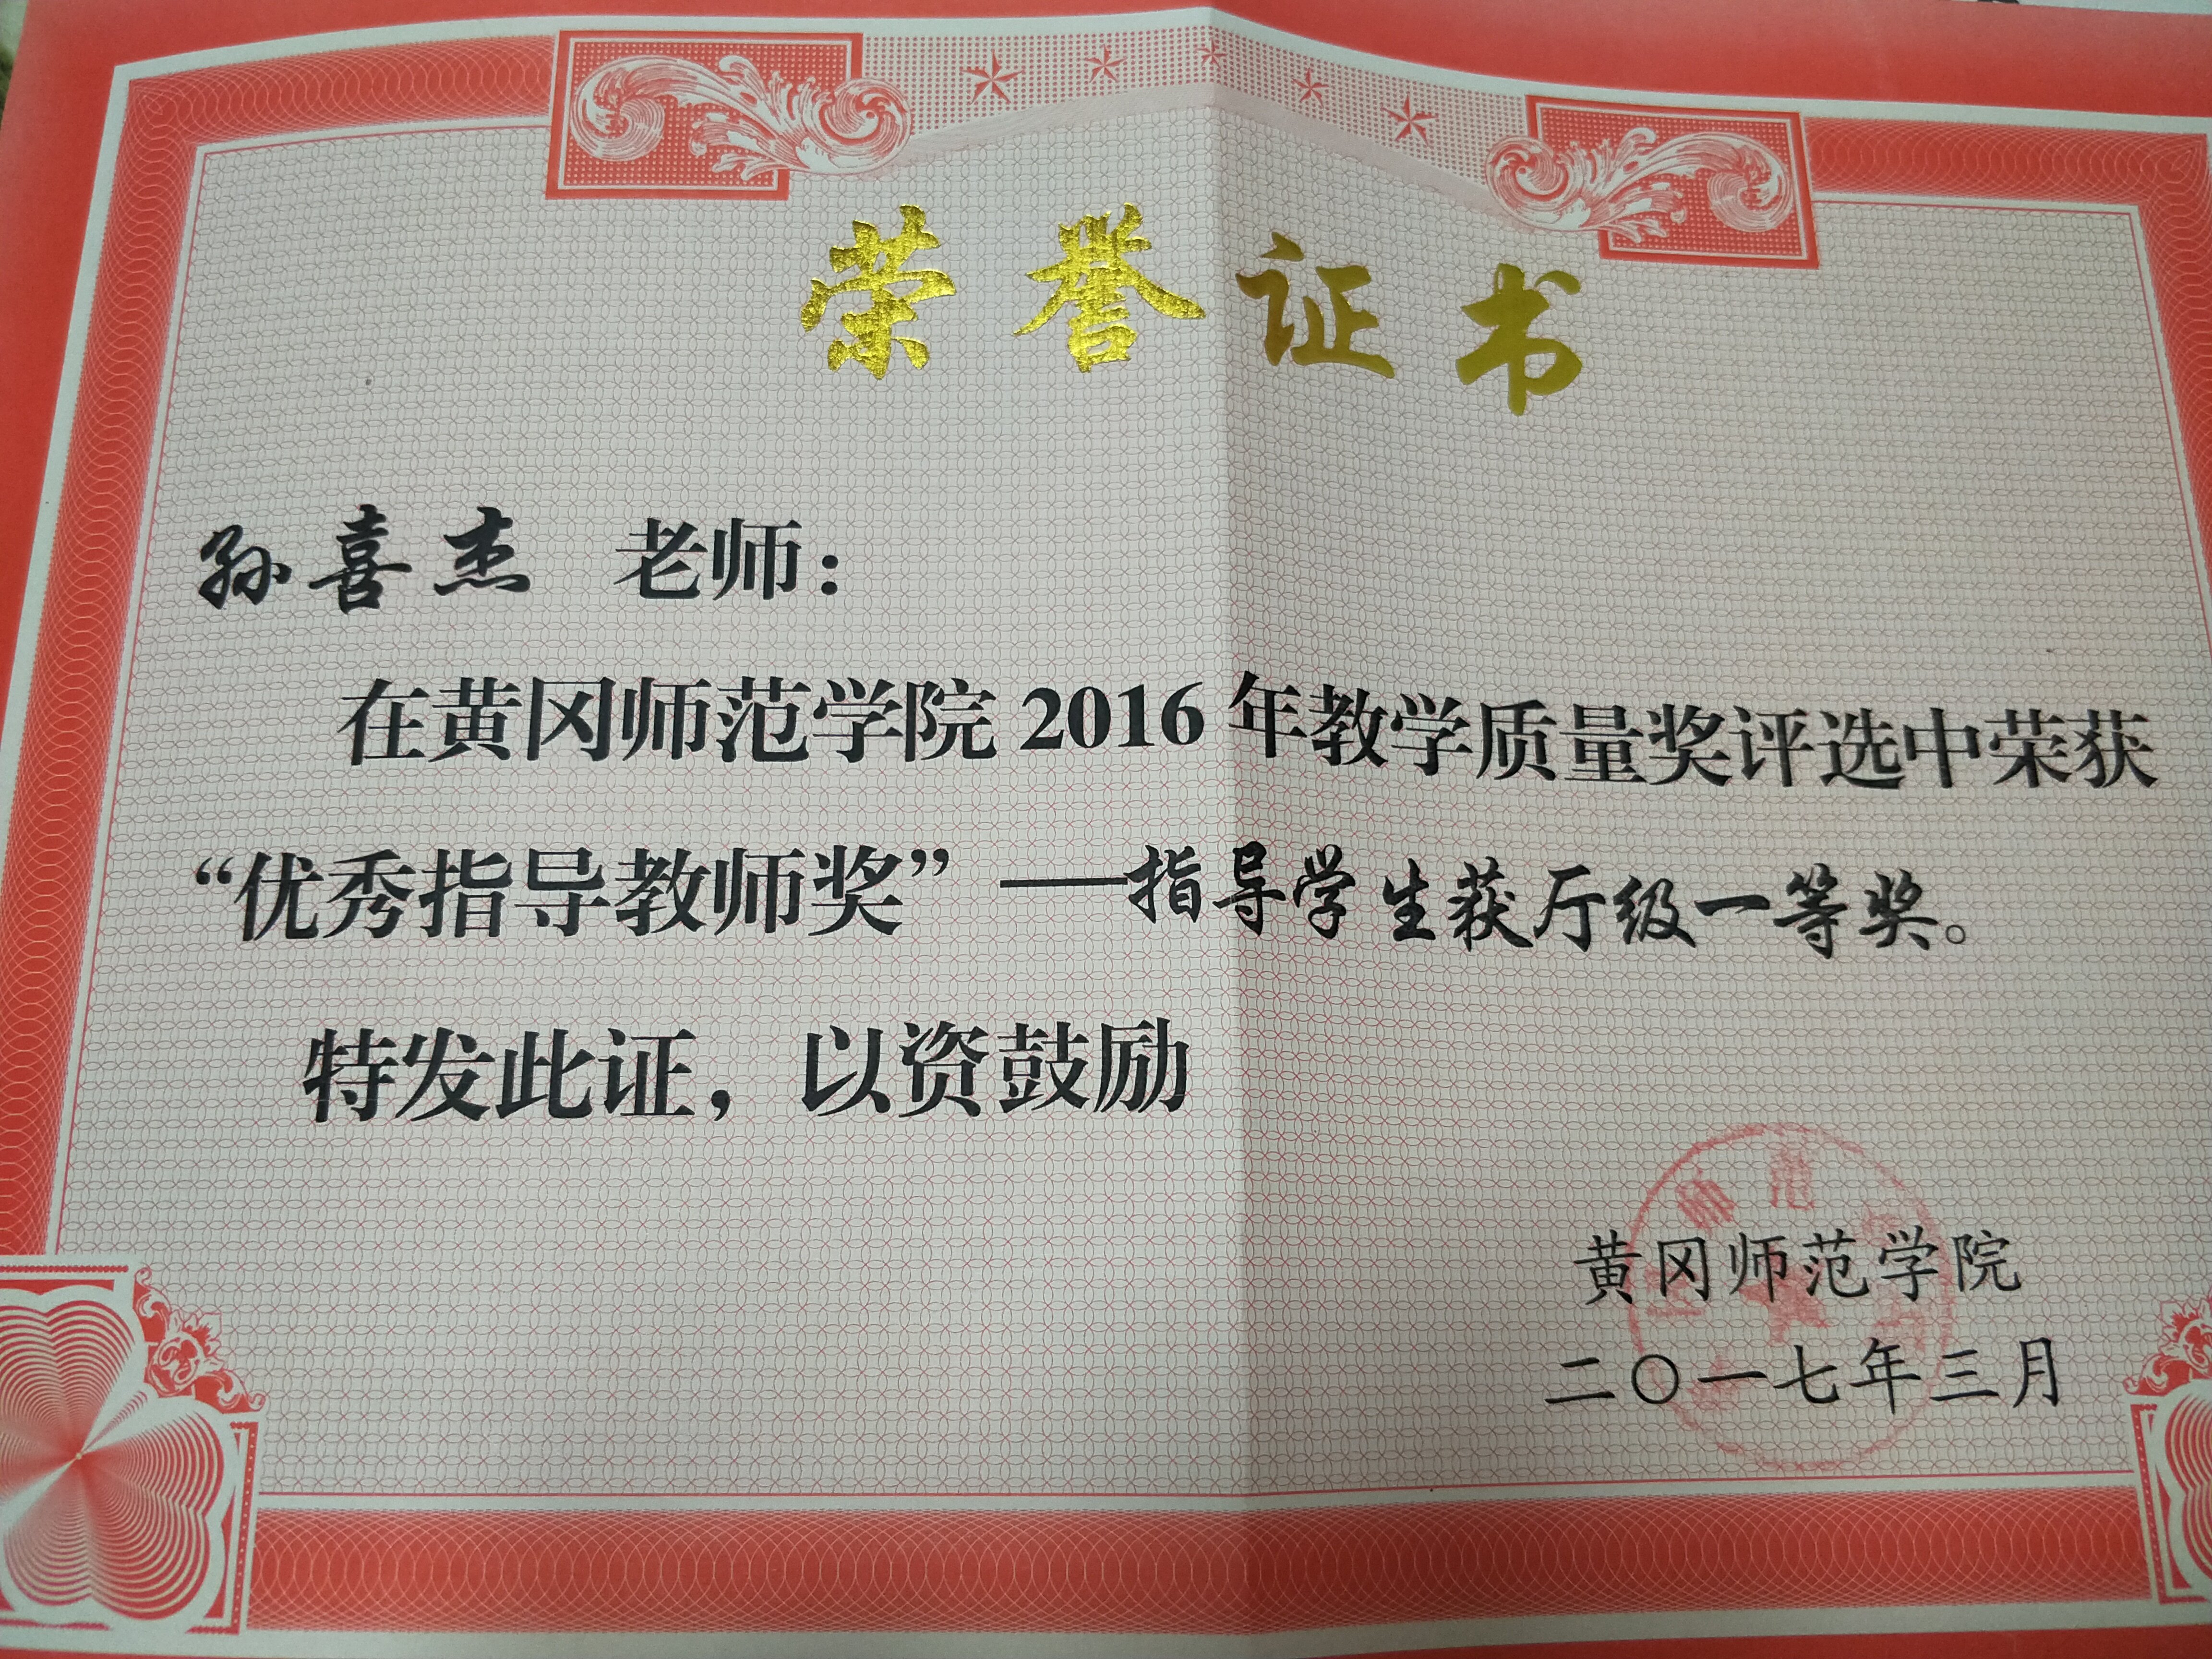 荣誉证书
孙喜杰 老师：
在黄冈师范学院 2016 年教学质量奖评选中荣获
“优秀指导教师奖”——指导学生获厅级一等奖。
特发此证，以资鼓励
师范
黄冈师范学院
二〇一七年三月